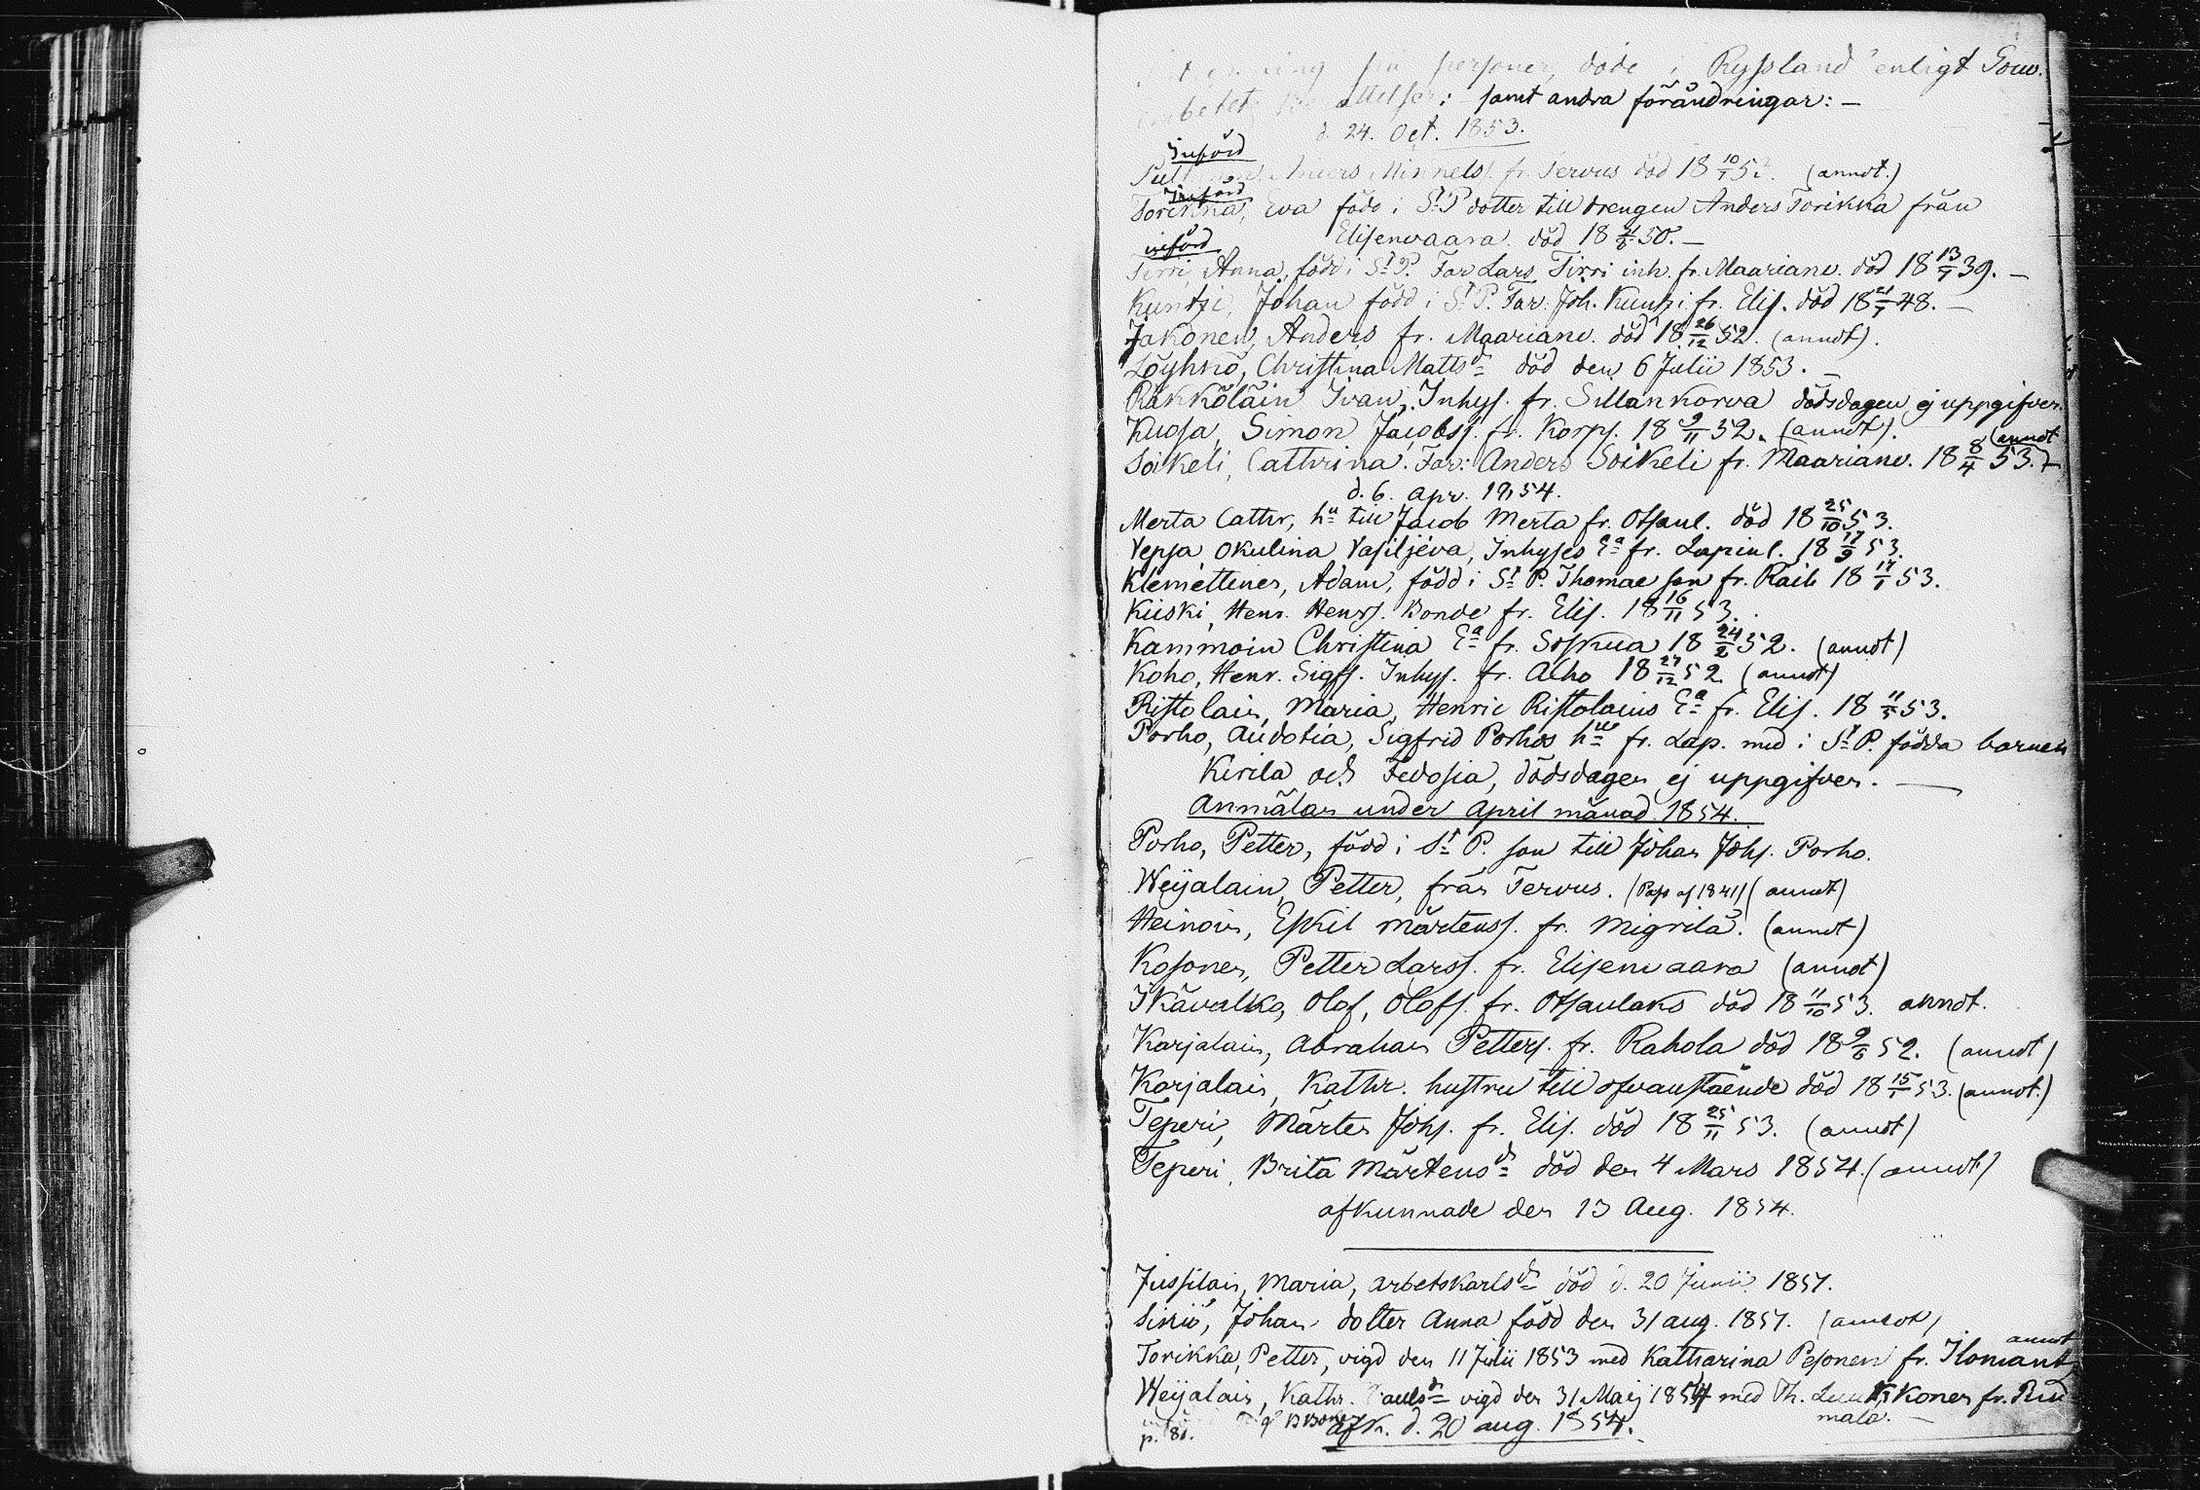 personer, döde i Ryssland enligt Gouv.
samt andra förändringar: —
d. 24. Oct. 1853.
Införd
fr. Tervus död 18 10/ 5 (annot.)
Införd
Torikka, Eva född i S:t P dotter till drengen Anders Torikka från
Elisenvaara. död 18 50. —
införd
Tirri Anna, född i S:t P. Far Lars Tirri inh. fr. Maarianv. död 18 13/ 39. —
Kuntzi, Johan född i S:t P. Far. Joh. Kuntzi fr. Elis. död 18 48. —
Jakonen, Anders fr. Maarianv. död 18 26/12 52. (annot).
Löyhkö, Christina Matts d:r död den 6 Julii 1853. —
Räkköläin Ivan, Inhys. fr. Sillankorva dödsdagen ej uppgifven.
Kuosa, Simon Jacobss. fr. Korps. 18 9/11 52. (annot).
Soikeli, Cathrina. Far: Anders Soikeli fr. Maarianv. 18 8/4 53. (annot
d. 6. Apr. 1854.
Merta Cathr, h:u till Jacob Merta fr. Otsanl. död 18 25/10 53.
Vepsa Okulina Vasiljéva, Inhyses E:a fr. Lapinl. 18 17/9 53.
Klemettinen, Adam, född i S:t P. Thomae son fr. Raib 18 17/1 53.
Kiiski, Henr. Henrs. Bonde fr. Elis. 18 16/11 53.
Kammoin Christina E:a fr. Soskua 18 24/2 52. (annot)
Koho, Henr. Sigfs. Inhys. fr. Alho 18 27/12 52 (annot)
Ristolain, Maria, Henric Ristolains E:a fr. Elis. 18 11/5 53.
Porho, Audotia, Sigfrid Porhos h:u fr. Lap. med i S:t P. födda barnen
Kirila och Fedosia, dödsdagen ej uppgifven. —
Anmälan under April månad 1854.
Porho, Petter, född i S:t P. son till Johan Johs. Porho.
Weijalain, Petter, från Tervus. (Pass af 1841) (annot)
Heinoin, Eskil Mårtenss. fr. Migrilä. (annot)
Kosonen, Petter Larss. fr. Elisenvaara (annot)
Ikävalko, Olof, Olofs. fr. Otsanlaks död 18 11/10 53. annot.
Karjalain, Abraham Petters. fr. Rahola död 18 9/6 52. (annot)
Karjalain, Kathr. hustru till ofvanstående död 18 15/1 53. (annot.)
Teperi, Mårten Johs. fr. Elis. död 18 25/11 53. (annot)
Teperi, Brita Mårtens d:r död den 4 Mars 1854. (annot)
afkunnade den 13 Aug. 1854.
Jussilain, Maria, arbetskarls d:r död d. 20 Junii 1851.
Sikiö, Johan dotter Anna född den 31 aug. 1851. (annot)
Torikka, Petter, vigd den 11 Julii 1853 med Katharina Pesonen fr. Ilomants annot
Weijalain, Kathr. Pauls d:r vigd den 31 Maij 1854 med Th. konen fr. Rud
mala. —
p. 81. afk. d. 20 aug. 1854.